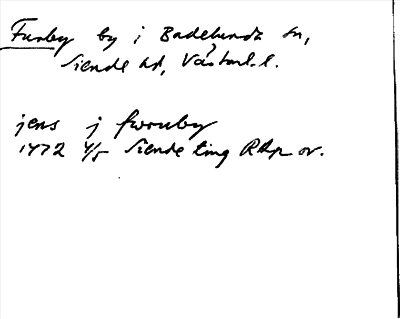 Furby by i Badelunda sn,
Siende hd, Västml. l.
jens j fworuby
1472 4/5 Siende ting RApr or.